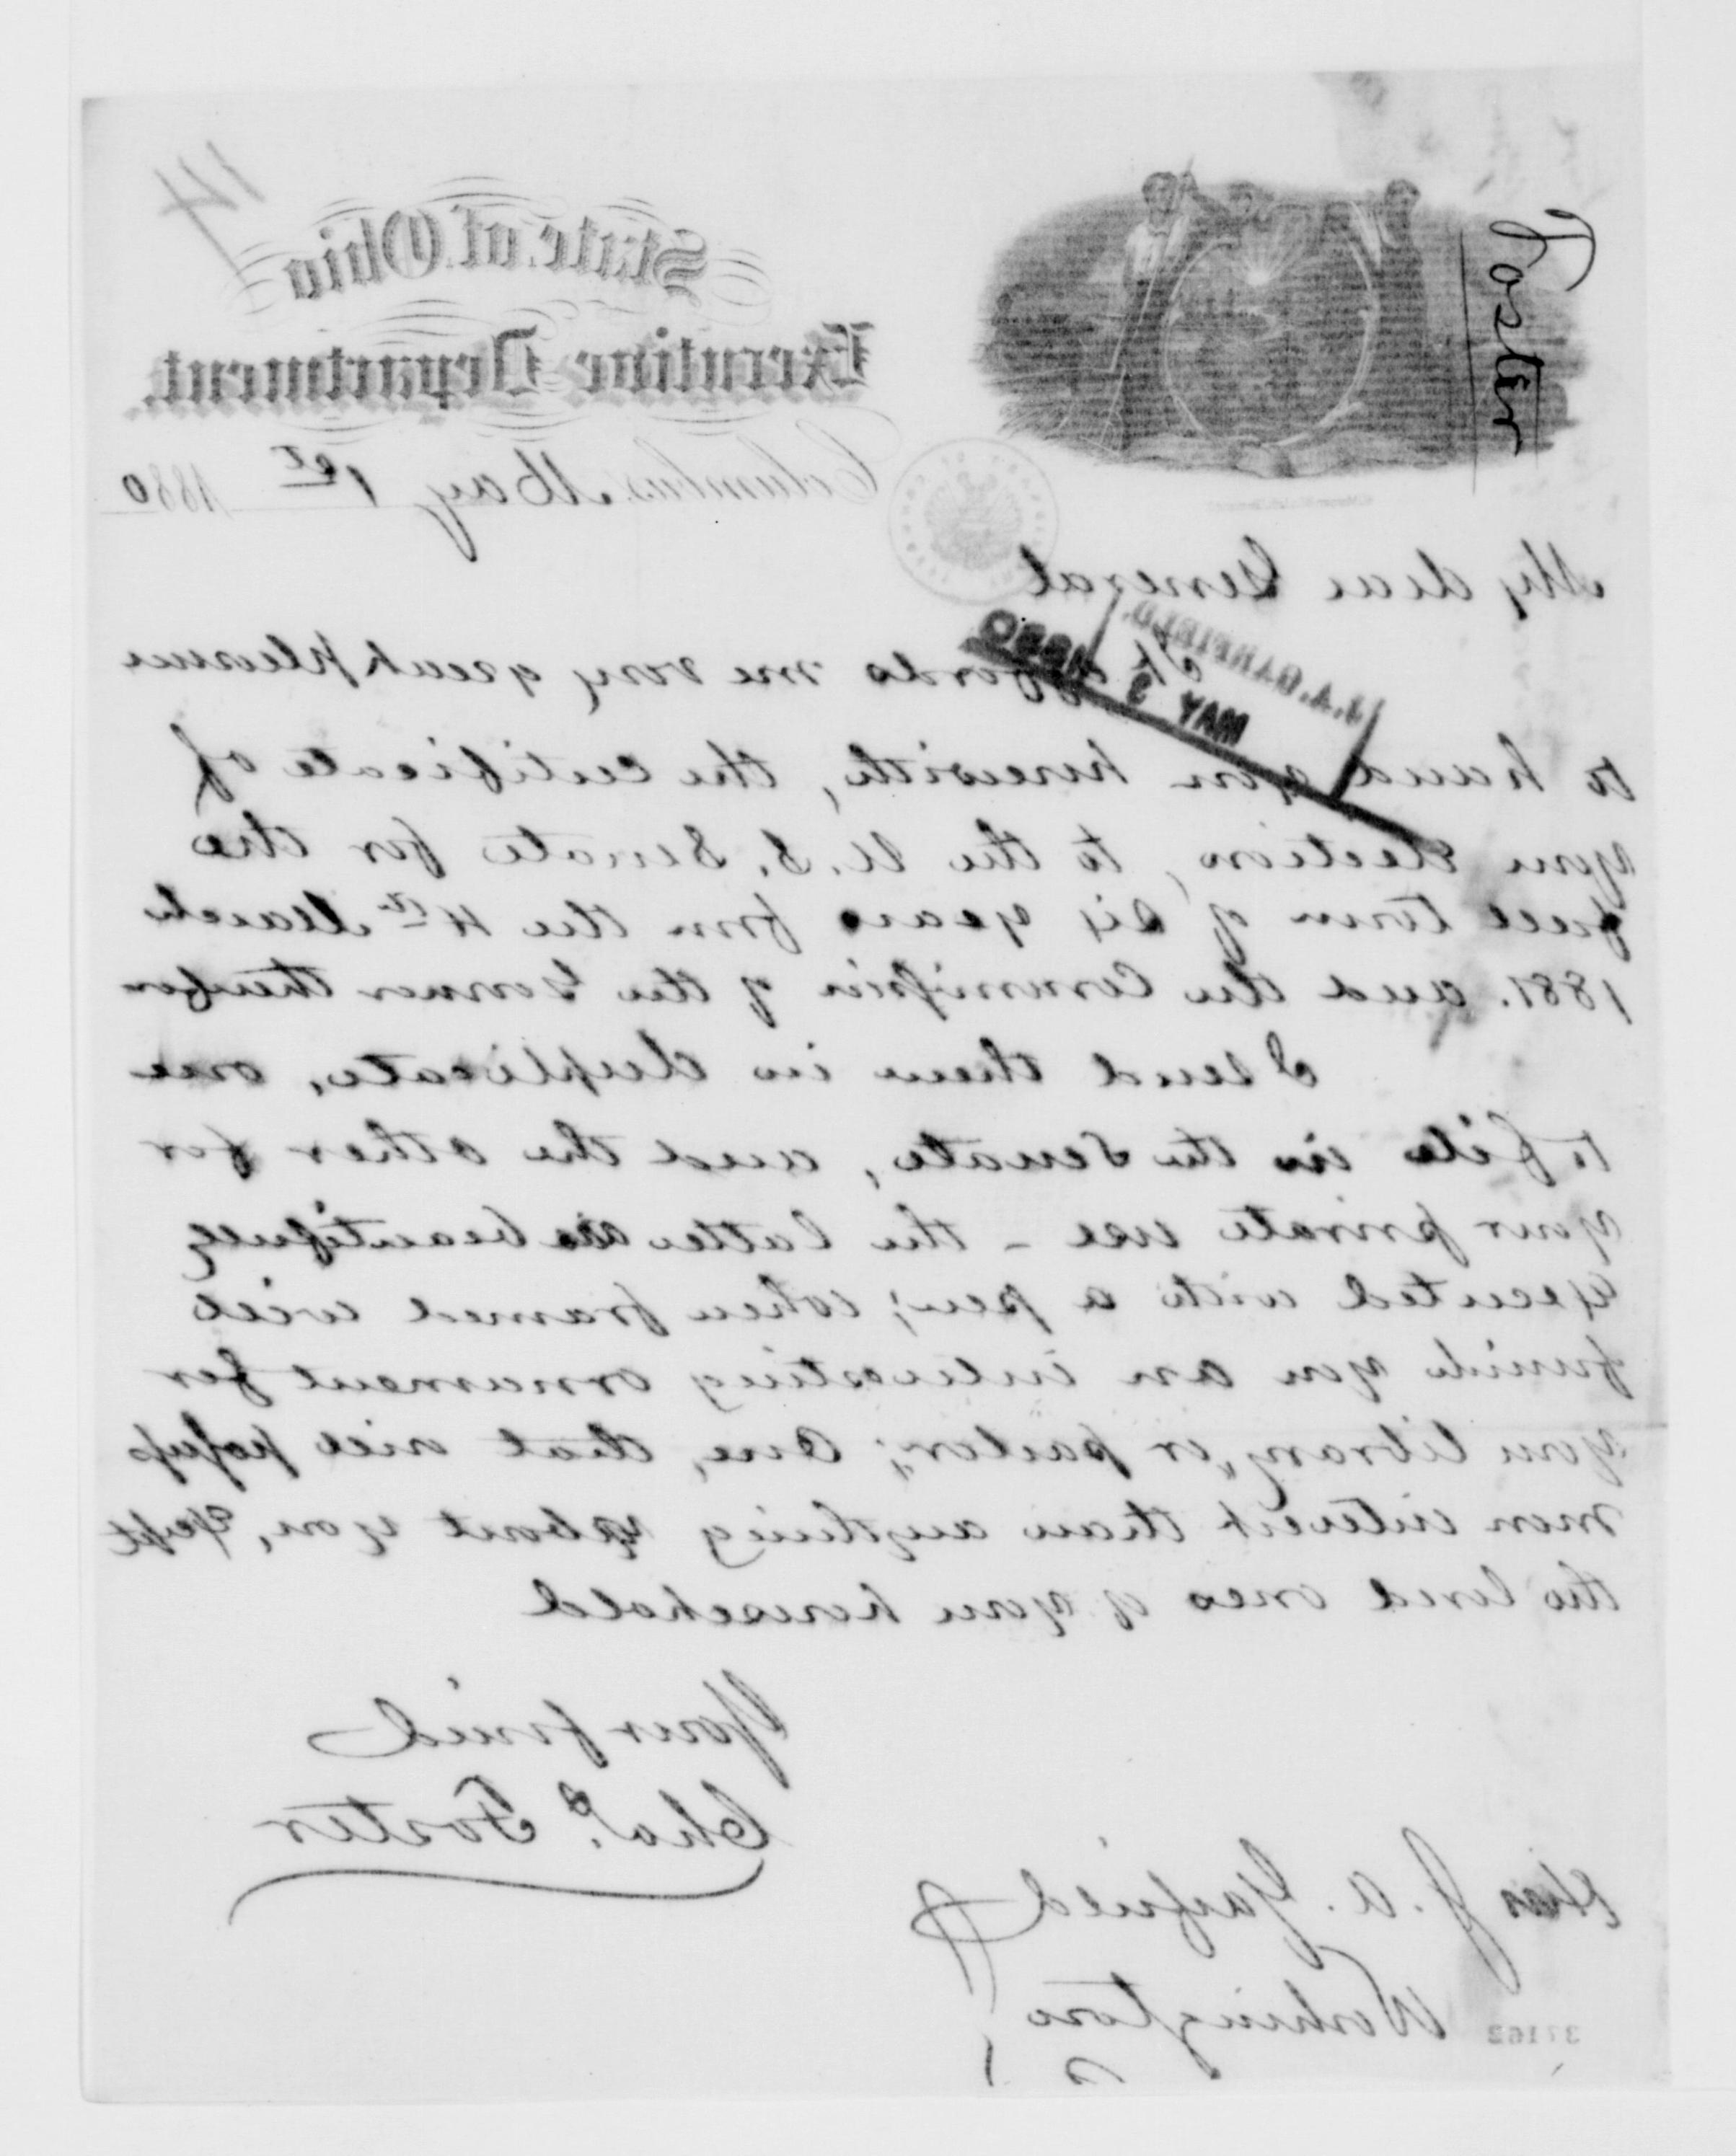 14
State of Ohio
Executive Department.
Columbus, May 1st 1880
Foster
My dear General
J. A. GARFIELD.
MAY 3 1880
It affords me very great pleasure
to hand you herewith, the certificate of
your election, to the U. S. Senate for the
full term of six years from the 4th March
1881. and the Commission of the Governor therefor
I send them in duplicate, one
to file in the Senate, and the other for
your private use - the latter is beautifully
executed with a pen; when framed will
furnish you an interesting ornament for
your library, or parlor; One, that will possess
more interest than anything about you, except
the loved ones of your household
Your friend
Chas. Foster
Hon J. A. Garfield
Washington
37162